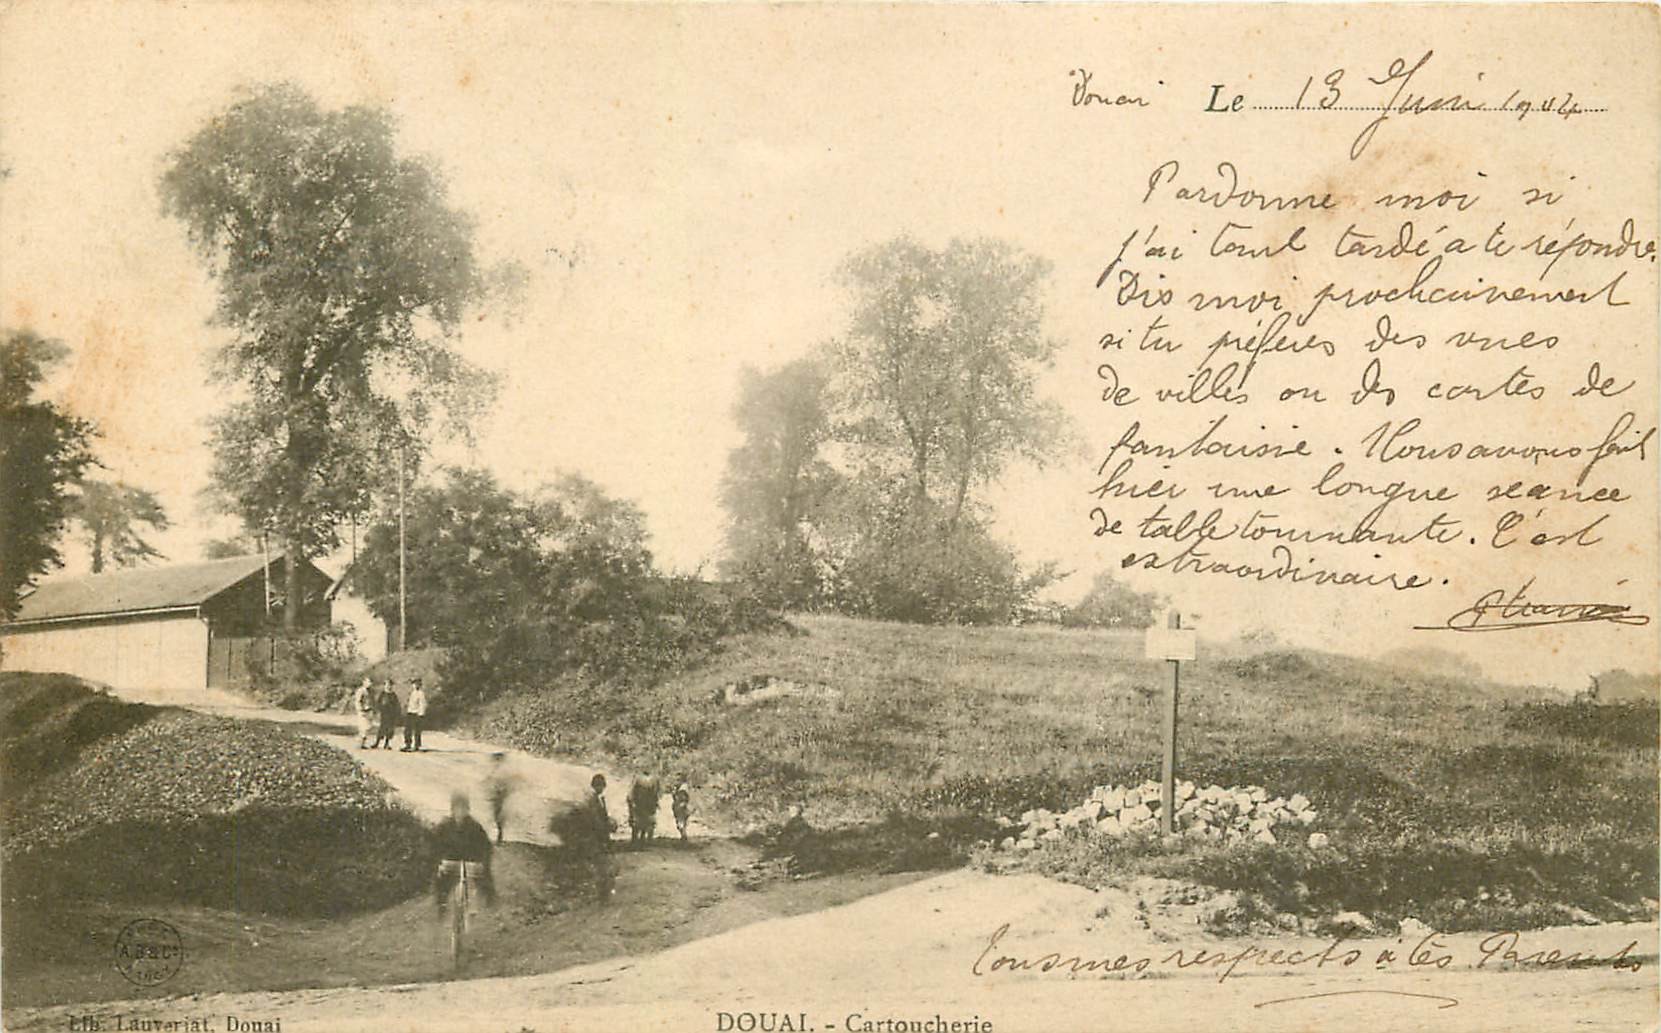 Douai Le 13 Juin 1904
Pardonne moi si
j'ai tant tardé a te répondre.
Dis moi prochainement
si tu préfères des vues
de villes ou des cartes de
fantaisie. Nous avons fait
hier une longue séance
de table tournante. C'est
extraordinaire.
Tous mes respects à tes Parents
A.B & Cie
NANCY
Lib. Lauverjat, Douai
DOUAI. - Cartoucherie